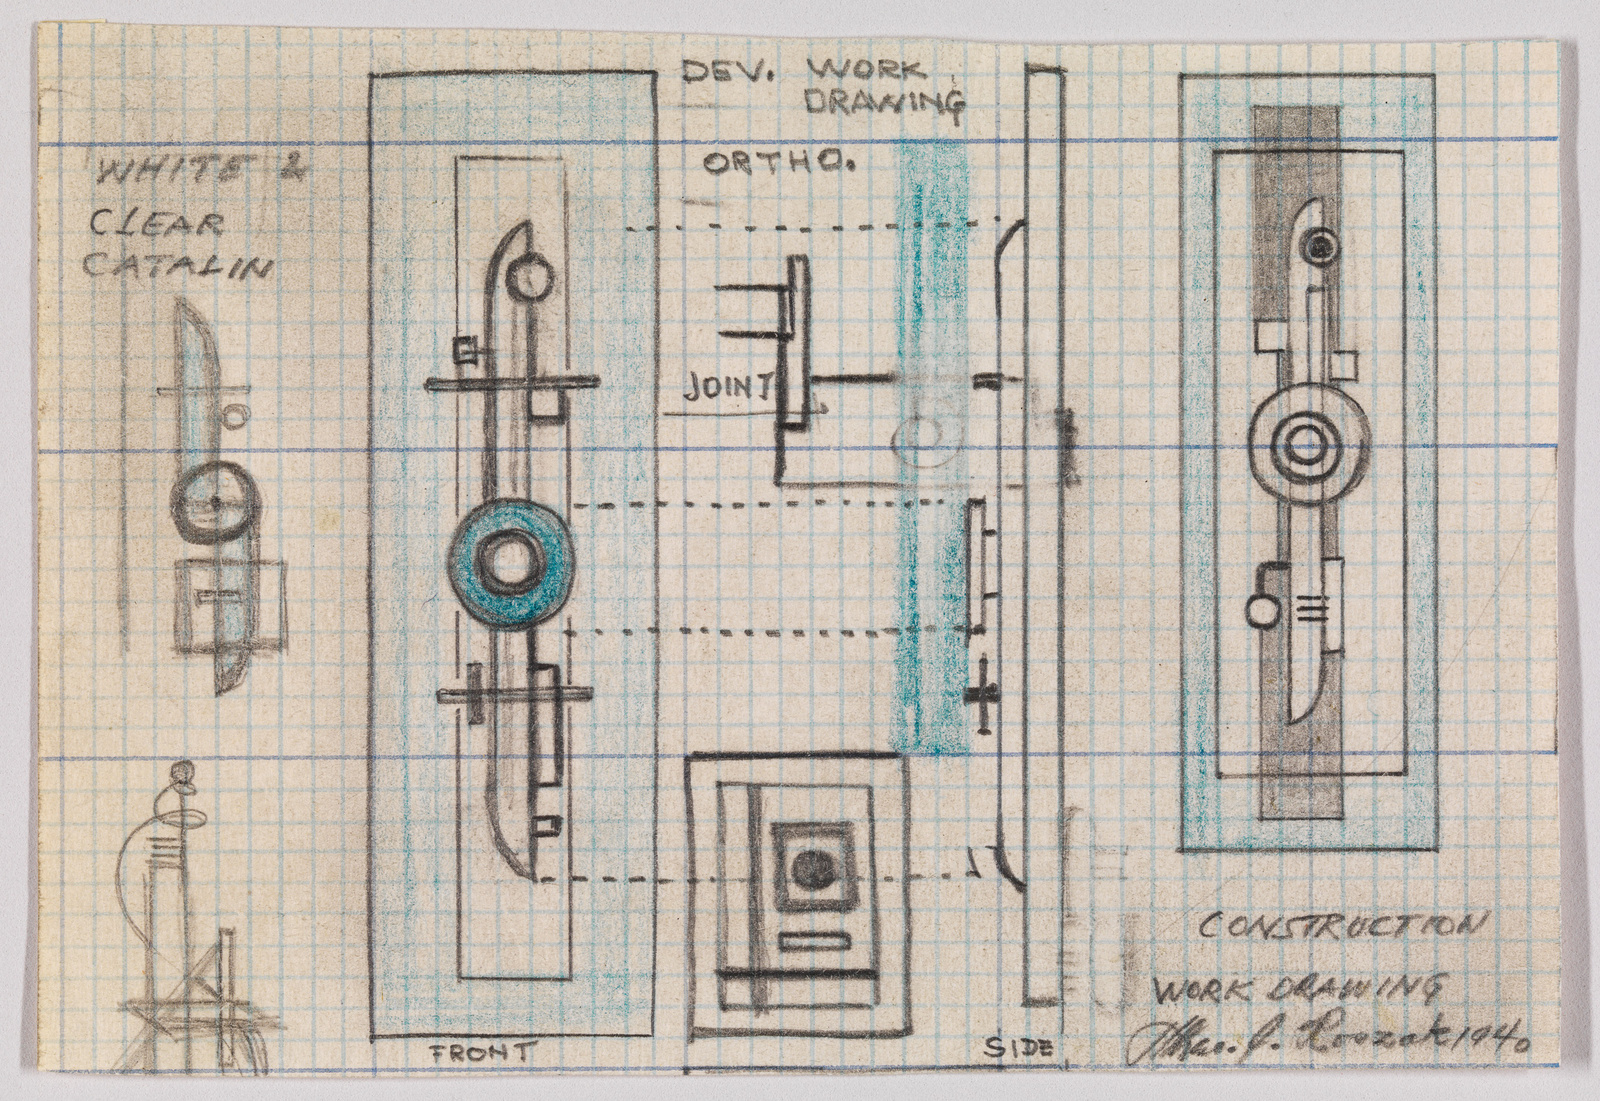 DEV. WORK
DRAWING
ORTHO.
WHITE &
CLEAR
CATALIN
JOINT
FRONT
SIDE
CONSTRUCTION
WORK DRAWING
Theo. J. Roszak 1940